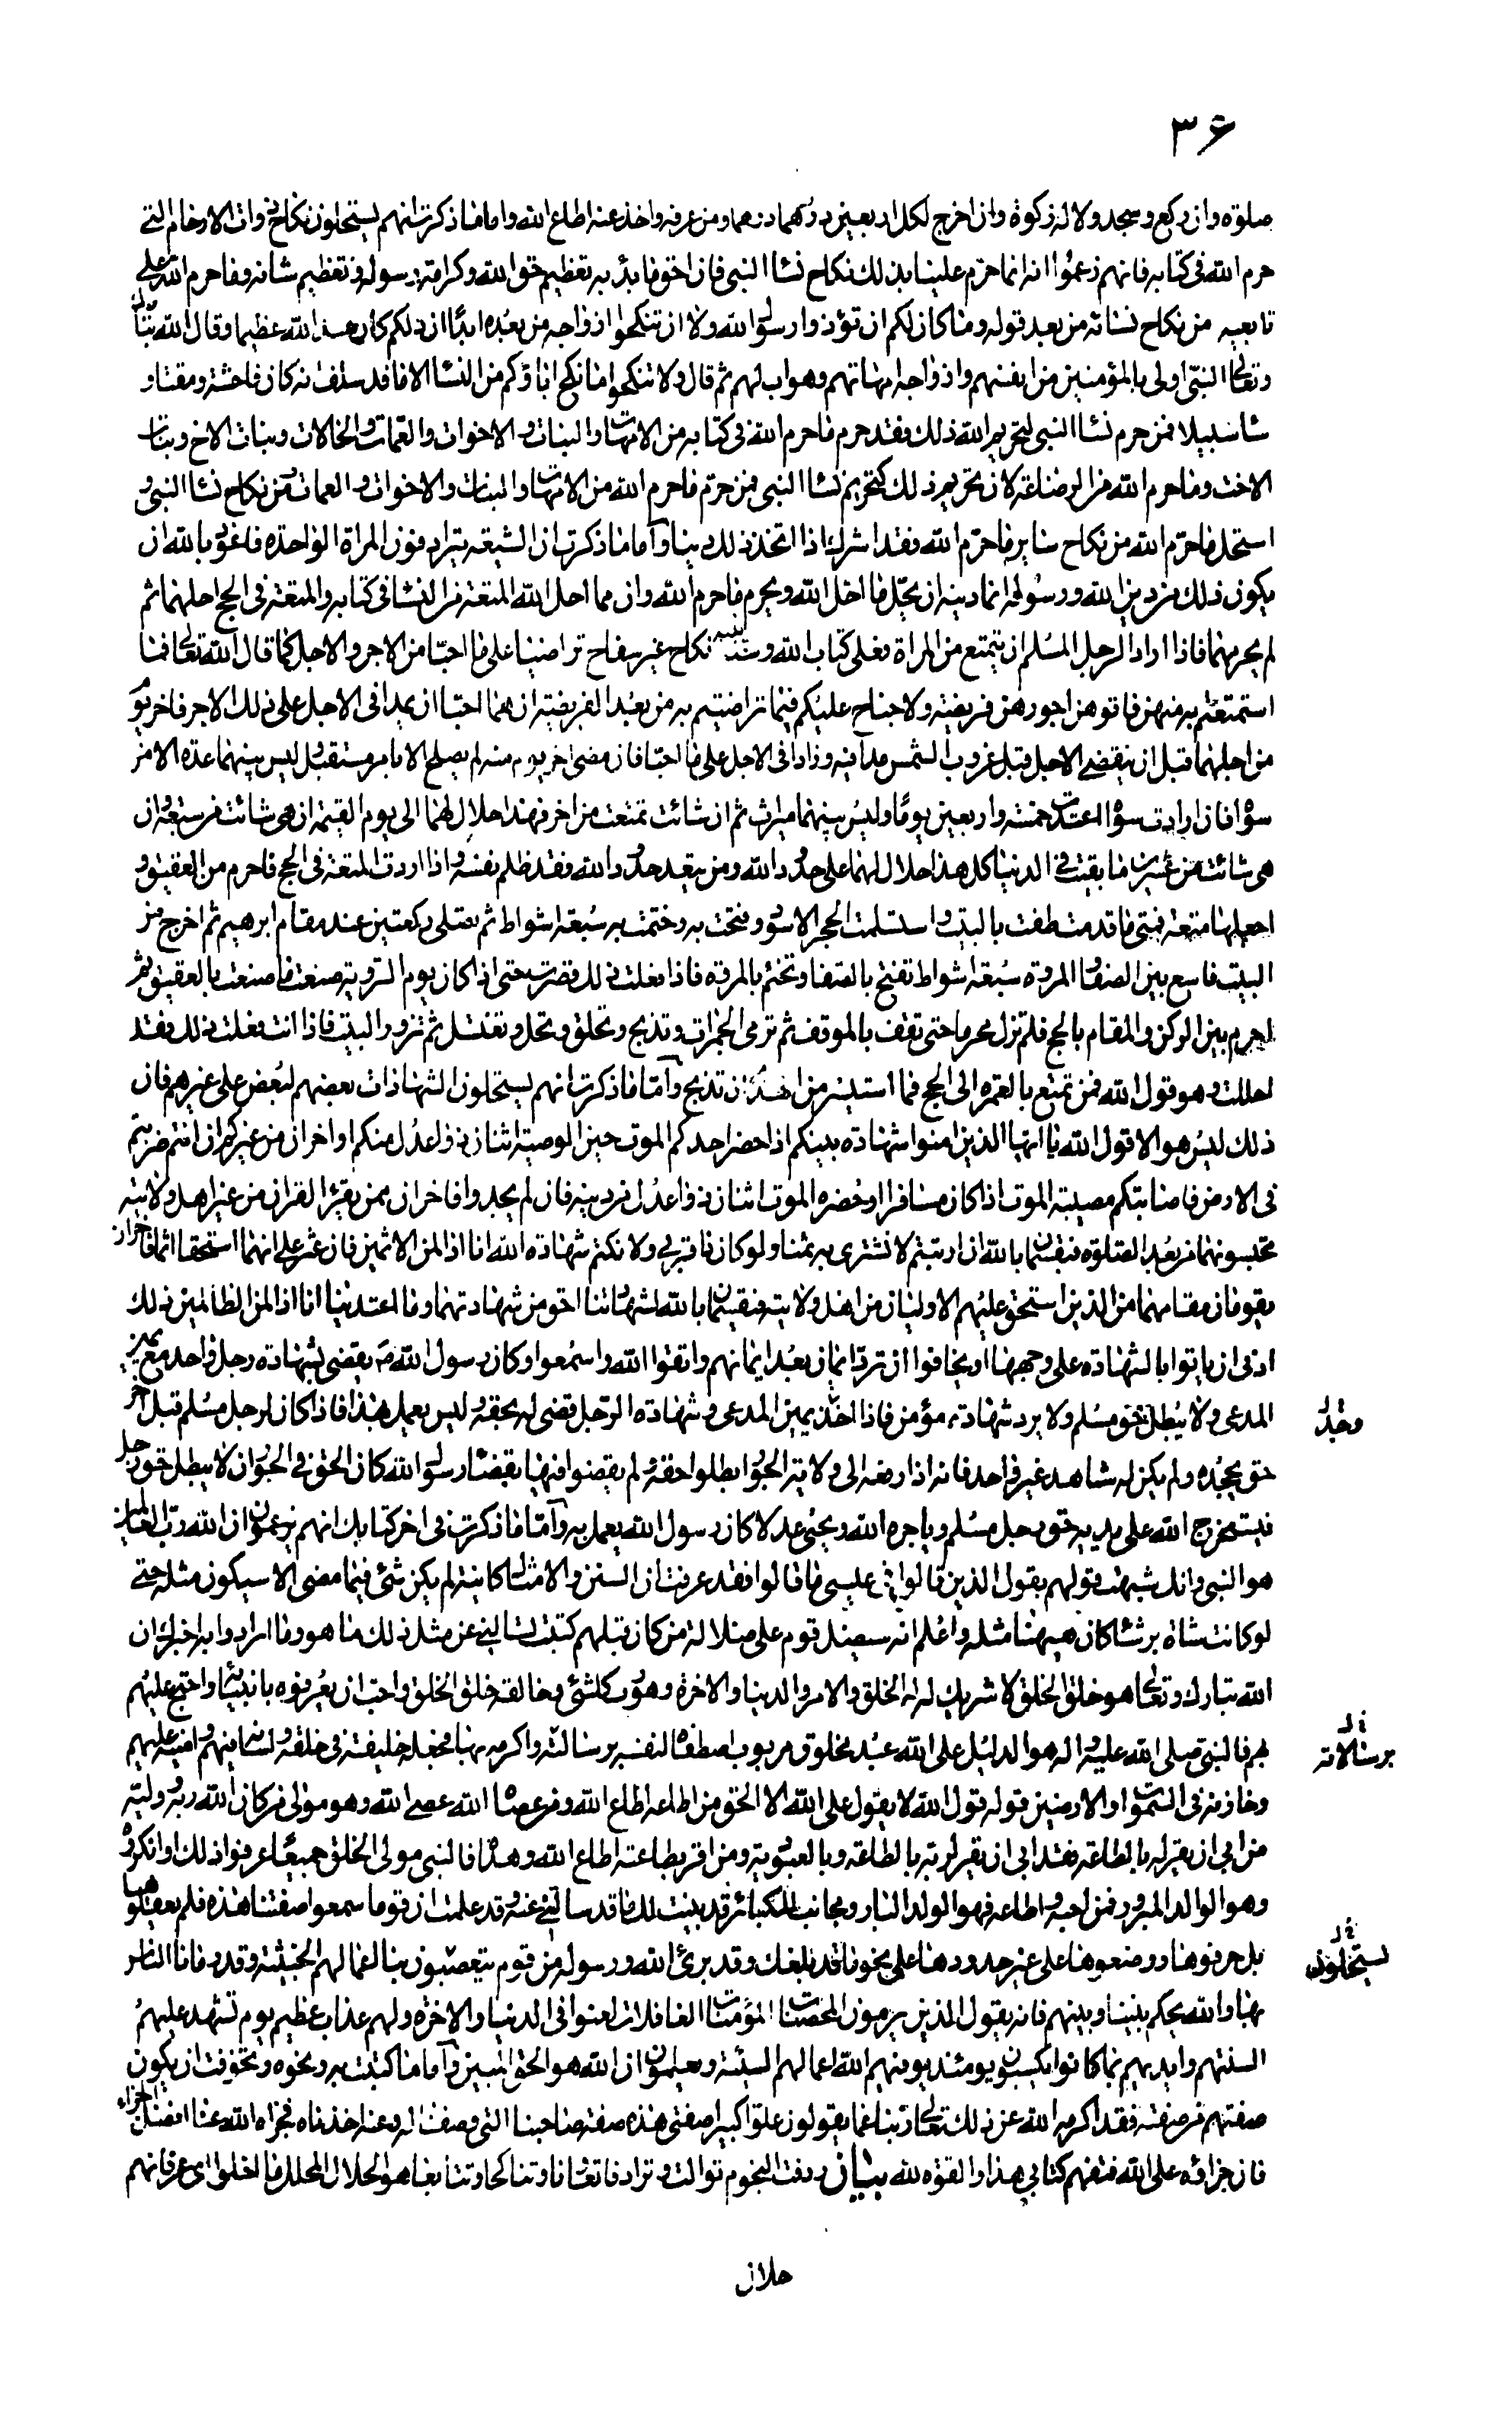 ٣۶
صلوة وان ركع وسجد ولا له زكوة وان اخرج لكل اربعين درهما درهما ومن عرفه واخذ عنه اطاع الله واما ما ذكرت انهم يستحلون نكاح ذوات الارحام التي
حرم الله في كتابه فانهم زعموا انه انما حرم علينا بذلك نكاح نساء النبي فان احق ما بدئ به تعظيم حق الله وكرامة رسوله وتعظيم شانه وما حرم الله على
تابعيه من نكاح نسائه من بعد قوله وما كان لكم ان تؤذوا رسول الله ولا ان تنكحوا ازواجه من بعده ابدا ان ذلكم كان عند الله عظيما وقال الله تبارك
وتعالى النبي اولى بالمؤمنين من انفسهم وازواجه امهاتهم وهو اب لهم ثم قال ولا تنكحوا ما نكح اباؤكم من النساء الا ما قد سلف انه كان فاحشة ومقتا و
ساء سبيلا فمن حرم نساء النبي لتحريم الله ذلك فقد حرم ما حرم الله في كتابه من الامهات والبنات والاخوات والعمات والخالات وبنات الاخ وبنات
الاخت وما حرم الله من الرضاعة لان تحريم ذلك كتحريم نساء النبي فمن حرم ما حرم الله من الامهات والبنات والاخوات والعمات من نكاح نساء النبي و
استحل ما حرم الله من نكاح سائر ما حرم الله فقد اشرك اذا اتخذ ذلك دينا واما ما ذكرت ان الشيعة يترادفون المراة الواحدة فاعوذ بالله ان
يكون ذلك من دين الله ورسوله انما دينه ان يحل ما احل الله ويحرم ما حرم الله وان مما احل الله المتعة من النساء في كتابه والمتعة في الحج احلهما ثم
لم يحرمهما فاذا اراد الرجل المسلم ان يتمتع من المراة فعلى كتاب الله وسنته نكاح غير سفاح تراضيا على ما احبا من الاجر والاجل كما قال الله تعالى فما
استمتعتم به منهن فاتوهن اجورهن فريضة ولا جناح عليكم فيما تراضيتم به من بعد الفريضة ان هما احبا ان يمدا في الاجل على ذلك الاجر فاخر يوم
من اجلهما قبل ان ينقضي الاجل قبل غروب الشمس مدا فيه وزادا في الاجل على ما احبا فان مضى اخر يوم منه لم يصلح الا بامر مستقبل ليس بينهما عدة الا من
سواه فان ارادت سواه اعتدت خمسة واربعين يوما وليس بينهما ميراث ثم ان شائت تمتعت من اخر فهذا حلال لهما الى يوم القيمة ان هي شائت من سبعة وان
هي شائت من عشرين ما بقيت في الدنيا كل هذا حلال لهما على حدود الله ومن يتعد حدود الله فقد ظلم نفسه واذا اردت المتعة في الحج فاحرم من العقيق و
اجعلها متعة فمتى ما قدمت طفت بالبيت واستلمت الحجر الاسود وفتحت به وختمت به سبعة اشواط ثم تصلي ركعتين عند مقام ابرهيم ثم اخرج من
البيت فاسع بين الصفا والمروة سبعة اشواط تفتح بالصفا وتختم بالمروة فاذا فعلت ذلك قصرت حتى اذا كان يوم التروية صنعت ما صنعت بالعقيق ثم
احرم بين الركن والمقام بالحج فلم تزل محرما حتى تقف بالموقف ثم ترمي الجمرات وتذبح وتحلق وتحل وتغتسل ثم تزور البيت فاذا انت فعلت ذلك فقد
احللت وهو قول الله فمن تمتع بالعمرة الى الحج فما استيسر من الهدي ان تذبح واما ما ذكرت انهم يستحلون الشهادات بعضهم لبعض على غيرهم فان
ذلك ليس هو الا قول الله يا ايها الذين امنوا شهادة بينكم اذا حضر احدكم الموت حين الوصية اثنان ذوا عدل منكم او اخران من غيركم ان انتم ضربتم
في الارض فاصابتكم مصيبة الموت اذا كان مسافرا وحضره الموت اثنان ذوا عدل من دينه فان لم يجدوا فاخران ممن يقرء القران من غير اهل ولايته
تحبسونهما من بعد الصلوة فيقسمان بالله ان ارتبتم لا نشتري به ثمنا ولو كان ذا قربى ولا نكتم شهادة الله انا اذا لمن الاثمين فان عثر على انهما استحقا اثما فاخران
يقومان مقامهما من الذين استحق عليهم الاوليان من اهل ولايته فيقسمان بالله لشهادتنا احق من شهادتهما وما اعتدينا انا اذا لمن الظالمين ذلك
ادنى ان ياتوا بالشهادة على وجهها او يخافوا ان ترد ايمان بعد ايمانهم واتقوا الله واسمعوا وكان رسول الله ص يقضي بشهادة رجل واحد مع يمين
المدعي ولا يبطل حق مسلم ولا يرد شهادة مؤمن فاذا اخذ يمين المدعي وشهادة الرجل قضى له بحقه وليس يعمل بهذا فاذا كان لرجل مسلم قبل اخر
وجد
حق يجحده ولم يكن له شاهد غير واحد فانه اذا رفعه الى ولاة الجور ابطلوا حقه ولم يقضوا فيها بقضاء رسول الله كان الحق في الجور ان لا يبطل حق رجل
فيستخرج الله على يديه حق رجل مسلم وياجره الله ويحيي عدلا كان رسول الله يعمل به واما ما ذكرت في اخر كتابك انهم يزعمون ان الله رب العالمين
هو النبي وانك شبهت قولهم بقول الذين قالوا في عيسى ما قالوا فقد عرفت ان السنن والامثال كائنة لم يكن شئ فيما مضى الا سيكون مثله حتى
لو كانت شاة برشاء كان ههنا مثله واعلم انه سيضل قوم على ضلالة من كان قبلهم كتبت تسالني عن مثل ذلك ما هو وما ارادوا به اخبرك ان
الله تبارك وتعالى هو خلق الخلق لا شريك له له الخلق والامر والدنيا والاخرة وهو رب كل شئ وخالقه خلق الخلق واحب ان يعرفوه بانبيائه واحتج عليهم
بهم فالنبي صلى الله عليه واله هو الدليل على الله عبد مخلوق مربوب اصطفاه لنفسه برسالته واكرمه بها فجعله خليفته في خلقه ولسانه فيهم وامينه عليهم
خ ل
برسالاته
وخازنه في السموات والارضين قوله قول الله لا يقول على الله الا الحق من اطاعه اطاع الله ومن عصاه عصى الله وهو مولى من كان الله ربه ووليه
من ابى ان يقر له بالطاعة فقد ابى ان يقر لربه بالطاعة وبالعبودية ومن اقر بطاعته اطاع الله وهداه فالنبي مولى الخلق جميعا عرفوا ذلك او انكروه
وهو الوالد المبرور فمن احبه واطاعه فهو الولد البار ومجانب للكبائر قد بينت لك ما قد سالتني عنه وقد علمت ان قوما سمعوا صفتنا هذه فلم يعقلوها
بل حرفوها ووضعوها على غير حدودها على نحو ما قد بلغك وقد برئ الله ورسوله من قوم يستحلون بنا اعمالهم الخبيثة وقد رمانا الناس
خ ل
يستحلون
بها والله يحكم بيننا وبينهم فانه يقول الذين يرمون المحصنات الغافلات المؤمنات لعنوا في الدنيا والاخرة ولهم عذاب عظيم يوم تشهد عليهم
السنتهم وايديهم بما كانوا يكسبون يومئذ يوفيهم الله اعمالهم السيئة ويعلمون ان الله هو الحق المبين واما ما كتبت به ونحوه وتخوفت ان يكون
صفتهم من صفته فقد اكرمه الله عن ذلك تعالى ربنا عما يقولون علوا كبيرا صفتي هذه صفة صاحبنا التي وصفنا له وعنه اخذناه فجزاه الله عنا افضل الجزاء
فان جزائه على الله فتفهم كتابي هذا والقوة لله بيان ردفت النجوم توالت وترادفا تعاونا وتناكحا وتتابعا هو الحلال المحلل ما احلوا اي عرفانهم
حلال